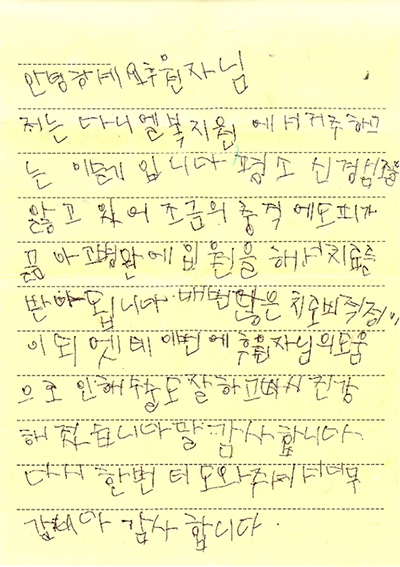 안녕하세요후원자님
저는 다니엘복지원 에서거주하고
는 입니다 평소 신경섬종
앓고 있어 조금의 충격 에도피가
고병원에입원을 해서치료를
받아야 됩니다 매번많은 치료비걱정이
이 되엇는데 이번에 후원자님의도움
으로 인해수술도잘하고다시건강
해 졌습니다말 감사합니다
다시 한번 더 도와주셔서너무
감사 합니다